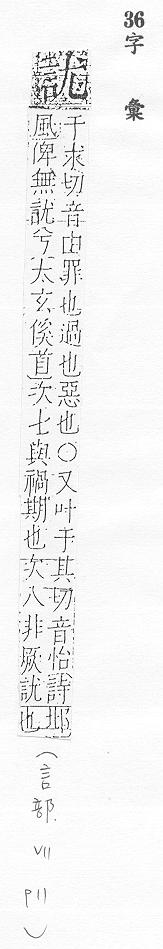 36字彙
訧
于求切音由罪也過也惡也○又叶于其切音怡詩邶
風俾無訧兮太玄傒首次七與禍期也次八非厥訧也
（言部 VII P11）